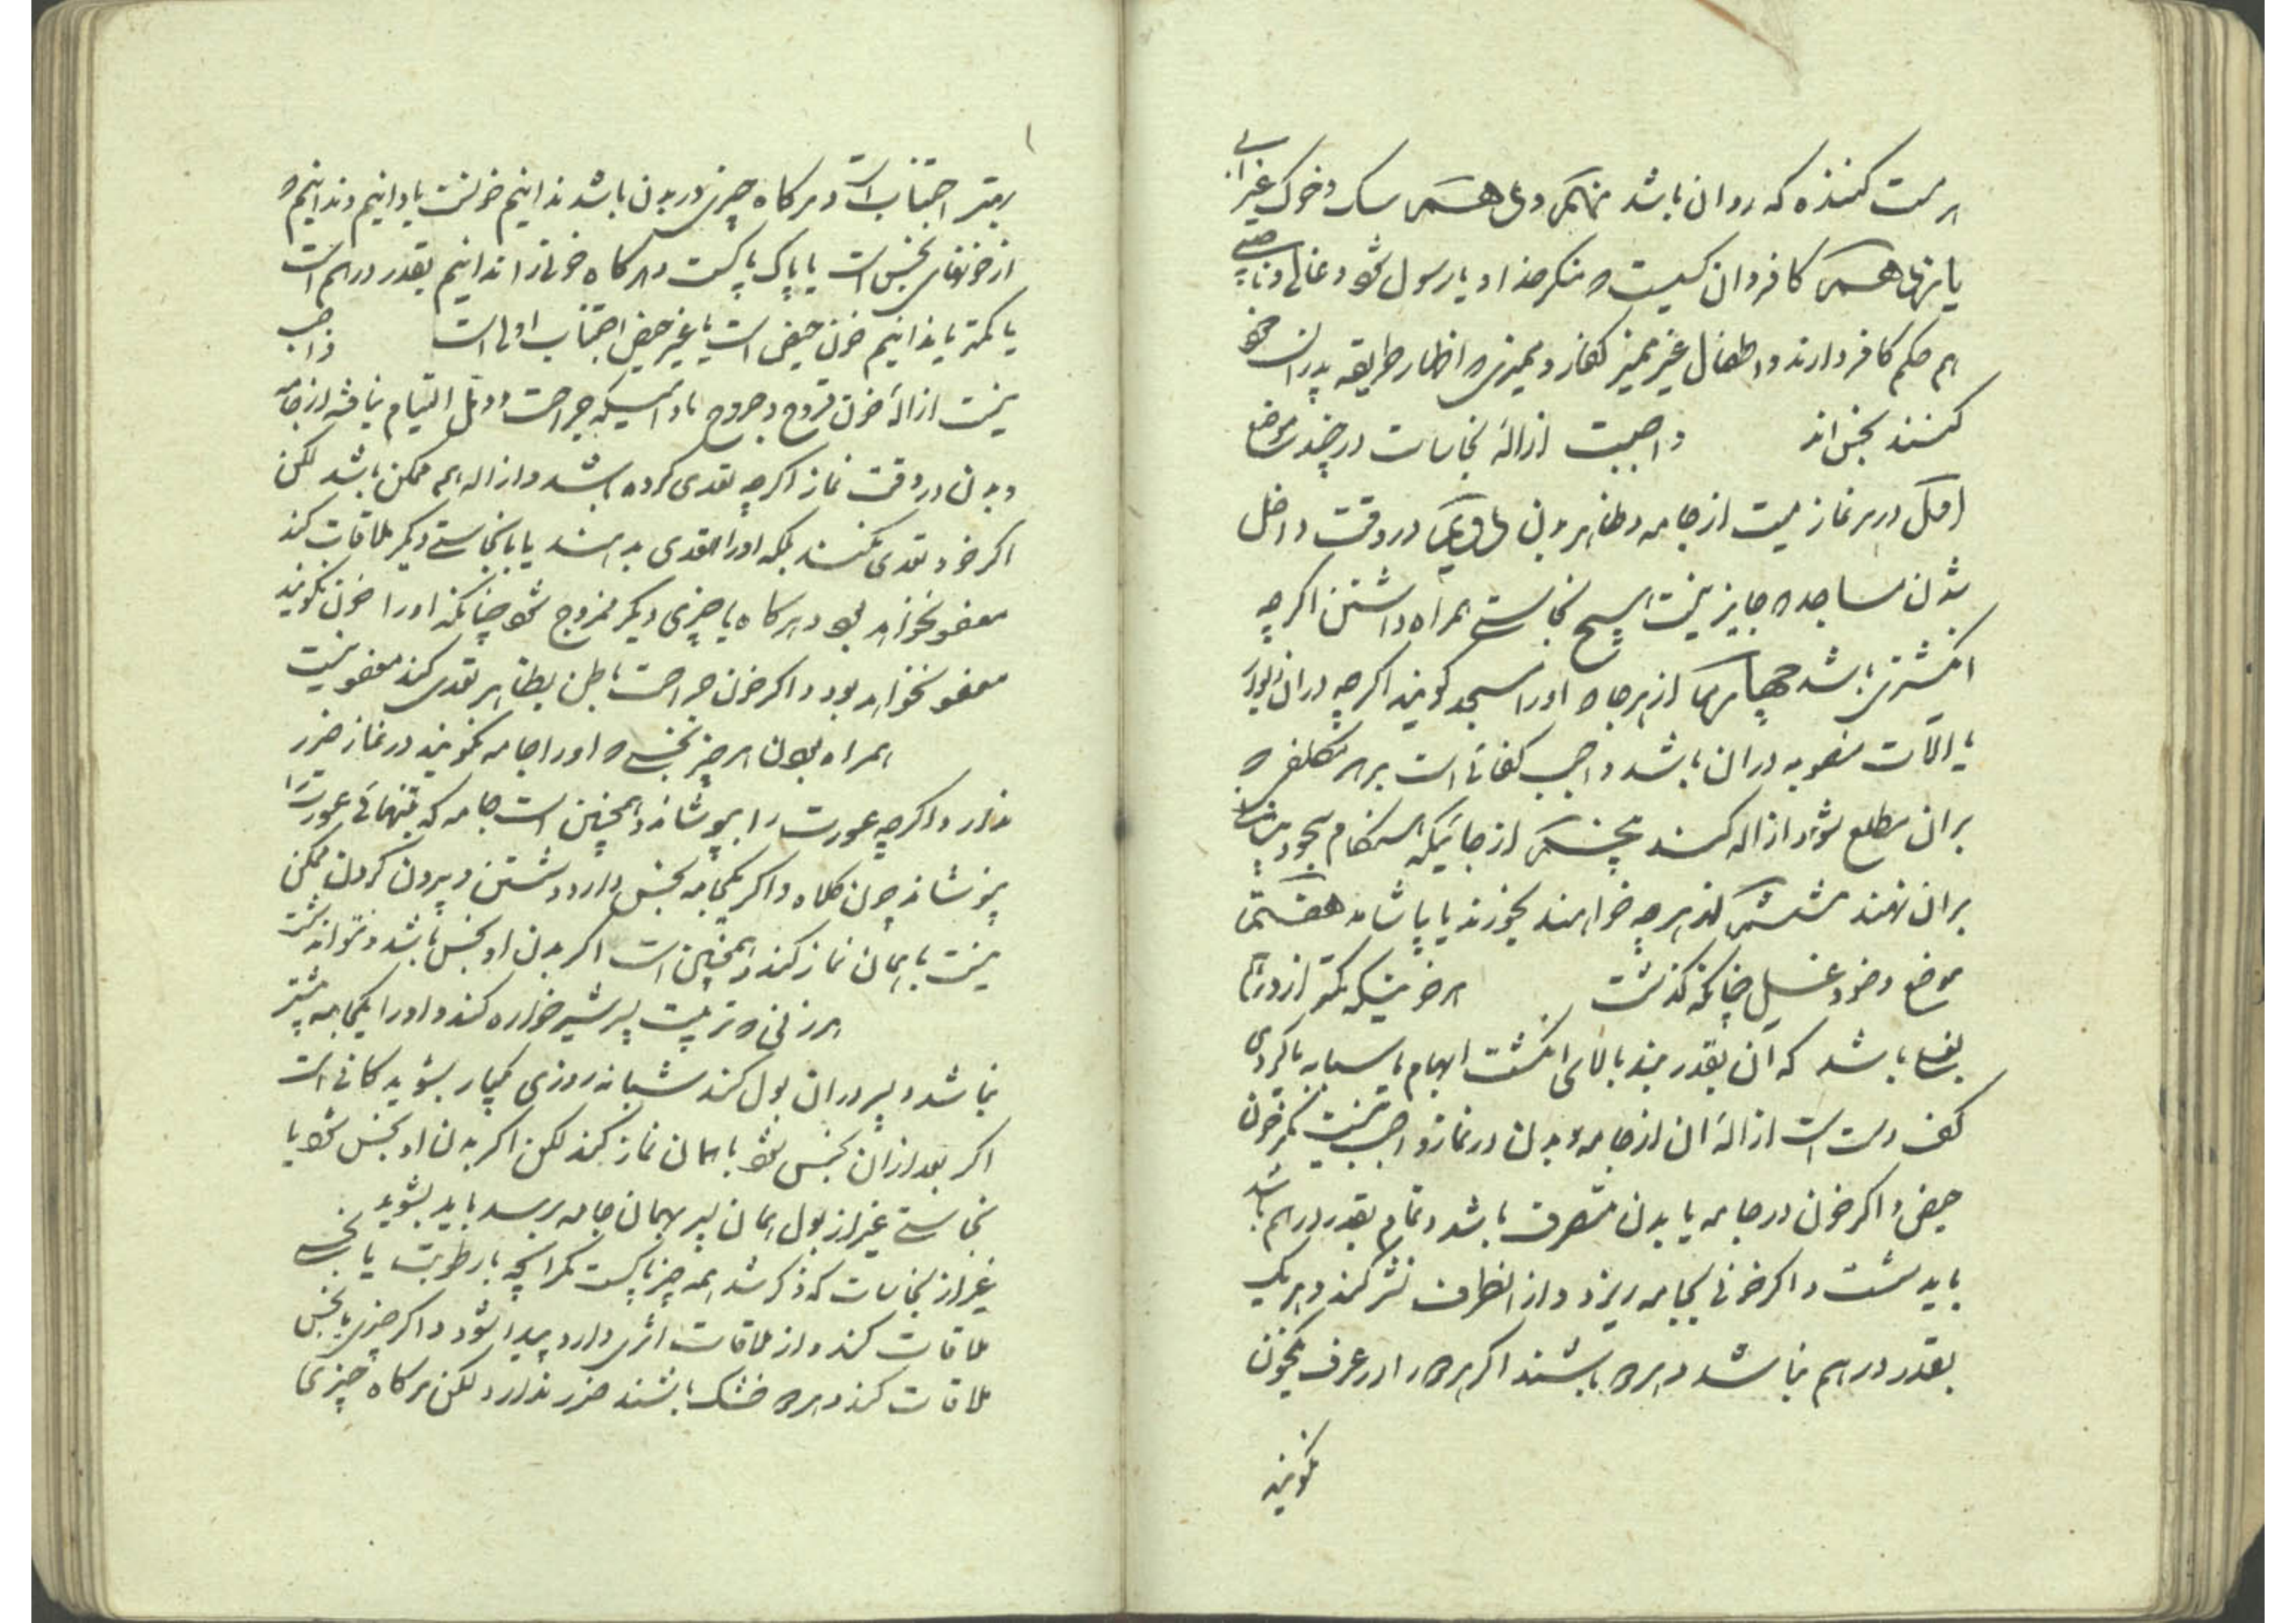 هر مست کننده که روان باشد نهم و دهم سک و خوک غیر آبی
یازدهم کافر و ان کسیست که منکر خدا و یا رسول شود و غالی و ناصبی
هم حکم کافر دارند و اطفال غیر ممیز کفار و ممیزی که اظهار طریقه پدران خود
کنند نجس اند واجبست ازالهٔ نجاسات در چند موضع
اول در هر نماز میت از جامه و ظاهر بدن در وقت داخل
شدن مساجد و جایز نیست هیچ نجاستی همراه داشتن اکرچه
انکشتری باشد چهارم از هر جا که اورا مسجد کویند اکرچه در ان
یا آلات منصوبه در ان باشد واجب کفائی است بر هر مکلفی که
بران مطلع شود ازاله کند پنجم از جائیکه هنکام سجود پیشانی
بران نهند ششم از هرچه خواهند بخورند یا بیاشامند هفتم
موضع وضو و غسل چنانکه کذشت هر خونیکه کمتر از درهم
بغلی باشد که ان بقدر بند بالای انکشت ابهام یا سبابه یا کردی
کف دست است ازالهٔ ان از جامه و بدن در نماز واجب نیست مکر خون
حیض و اکر خون در جامه یا بدن متفرق باشد و تمام بقدر درهم باشد
باید شست و اکر خونی بجامه ریزد و از انطرف نشر کند و هر یک
بقدر درهم نباشد و هر دو باشند اکر هر دو را در عرف یکخون
کویند
بهتر اجتناب است و هرکاه چیزی در بدن باشد ندانیم خونست یا دانیم و ندانیم که
از خونهای نجس است یا پاک پاکست و هرکاه خونرا ندانیم بقدر درهم است
یا کمتر یا ندانیم خون حیض است یا غیر حیض اجتناب اولی است واجب
نیست ازالهٔ خون قروح و جروح مادامیکه جراحت و دمل التیام نیافته از جامه
و بدن در وقت نماز اکرچه تعدی کرده باشد و ازاله هم ممکن باشد لکن
اکر خود تعدی نکند بلکه اورا تعدی بدهند یا با نجاستی دیکر ملاقات کند
معفو نخواهد بود و هرکاه با چیزی دیکر ممزوج شود چنانکه اورا خون نکویند
معفو نخواهد بود و اکر خون جراحت باطن بظاهر تعدی کند معفو نیست
همراه بودن هر چیز نجسی که اورا جامه نکویند در نماز ضرر
ندارد و اکرچه عورت را بپوشاند و همچنین است جامه که بتنهائی عورت را
نپوشاند چون کلاه و اکر یکجامه نجس دارد و شستن و بیرون کردن ممکن
نیست با همان نماز کند و همچنین است اکر بدن او نجس باشد و نتواند شست
هر زنی که تربیت پسر شیرخواره کند و اورا یکجامه بیشتر
نباشد و پسر در ان بول کند شبانه روزی یکبار بشوید کافی است
اکر بعد از ان نجس شود با همان نماز کند لکن اکر بدن او نجس شود یا
نجاستی غیر از بول همان پسر بهمان جامه برسد باید بشوید
غیر از نجاسات که ذکر شد همه چیز پاکست مکر انچه با رطوبت با نجسی
ملاقات کند و از ملاقات اثری دارد پیدا شود و اکر چیزی با نجس
ملاقات کند و هر دو خشک باشند ضرر ندارد و لکن هرکاه چیزی